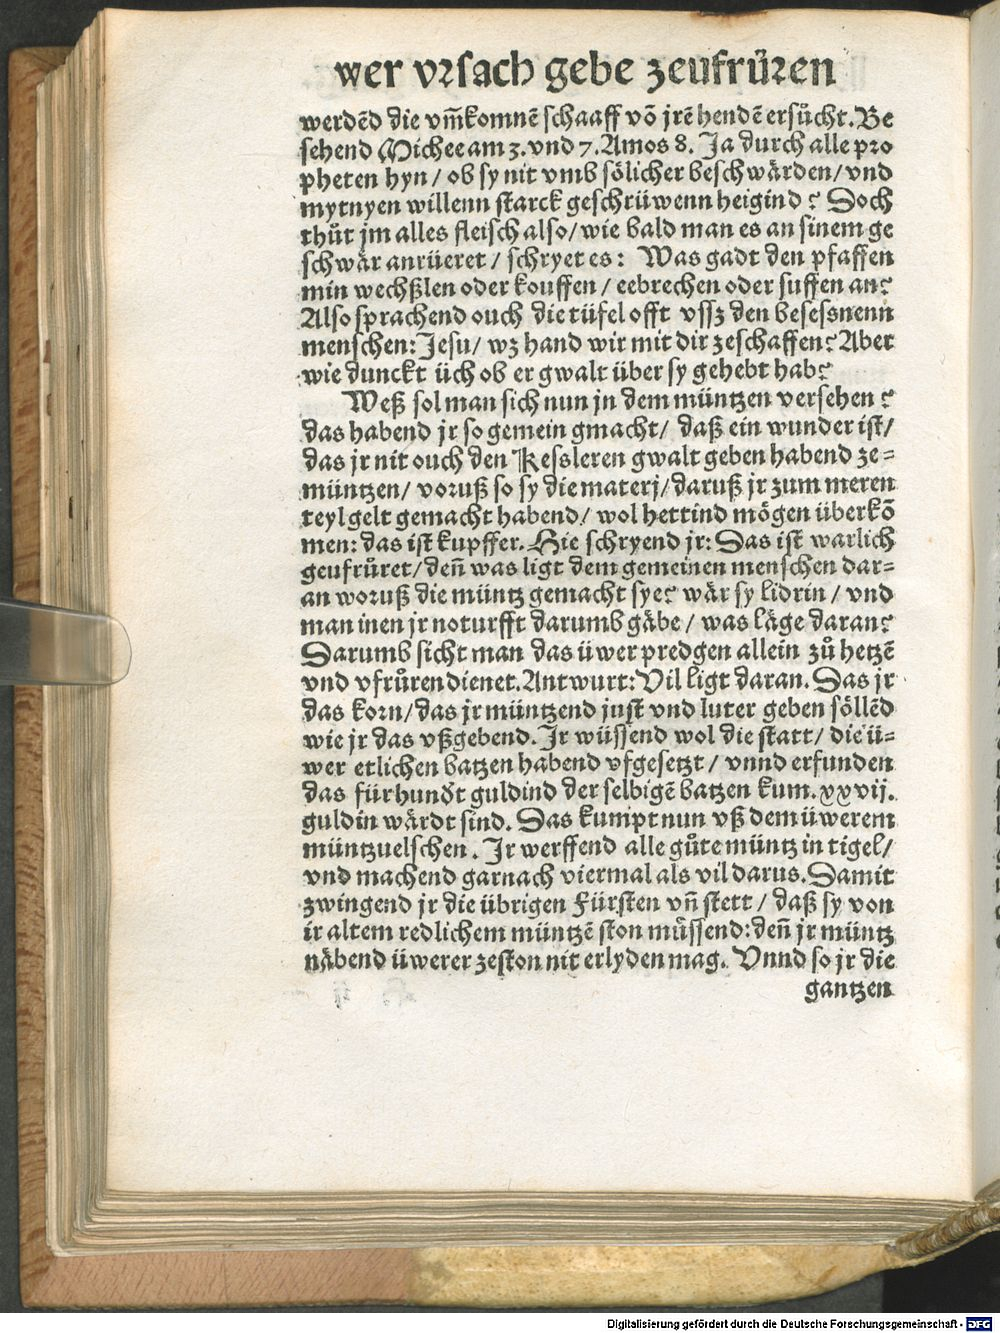 wer vrsach gebe zeufrüren
werdẽd die vm̃komnẽ schaaff võ jrẽ hendẽ ersůcht. Be
sehend Michee am 3. vnd 7. Amos 8. Ja durch alle pro
pheten hyn / ob sy nit vmb sölicher beschwärden / vnd
mytnyen willenn starck geschrüwenn heigind? Doch
thůt jm alles fleisch also / wie bald man es an sinem ge
schwär anrüeret / schryet es: Was gadt den pfaffen
min wechßlen oder kouffen / eebrechen oder suffen an?
Also sprachend ouch die tüfel offt vssz den besessnenn
menschen: Jesu / wz hand wir mit dir zeschaffen? Aber
wie dunckt üch ob er gwalt über sy gehebt hab?
Weß sol man sich nun jn dem müntzen versehen?
das habend jr so gemein gmacht / daß ein wunder ist /
das jr nit ouch den Kessleren gwalt geben habend ze=
müntzen / voruß so sy die materj / daruß jr zum meren
teyl gelt gemacht habend / wol hettind mögen überkõ
men: das ist kupffer. Hie schryend jr: Das ist warlich
geufrüret / deñ was ligt dem gemeinen menschen dar=
an woruß die müntz gemacht sye? wär sy lidrin / vnd
man inen jr noturfft darumb gäbe / was läge daran?
Darumb sicht man das üwer predgen allein zů hetzẽ
vnd vfrůren dienet. Antwurt: Vil ligt daran. Das jr
das korn / das jr müntzend just vnd luter geben söllẽd
wie jr das vßgebend. Ir wüssend wol die statt / die ü=
wer etlichen batzen habend vfgesetzt / vnnd erfunden
das für hundt guldind der selbigẽ batzen kum. xxvij.
guldin wärdt sind. Das kumpt nun vß dem üwerem
müntzuelschen. Ir werffend alle gůte müntz in tigel /
vnd machend garnach viermal als vil darus. Damit
zwingend jr die übrigen Fürsten vñ stett / daß sy von
ir altem redlichem müntzẽ ston müssend: deñ jr müntz
näbend üwerer zeston nit erlyden mag. Vnnd so jr die
gantzen
Digitalisierung gefördert durch die Deutsche Forschungsgemeinschaft - DFG